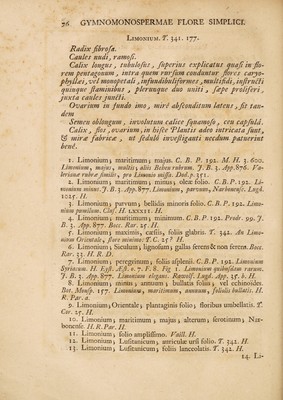 76 GYMNOMONOSPERMAE FLORE SIMPLICI.
LIMONIUM. T. 341. 177.
Radix fibrosa.
Caules nudi, ramosi.
Calix longus, tubulosus, superius explicatus quasi in flo-
rem pentagonum, intra quem rursum conduntur flores caryo-
phyllæi, vel monopetali, infundibuliformes, multifidi, instructi
quinque staminibus, plerunque duo uniti, sæpe proliferi,
juxta caules juncti.
Ovarium in fundo imo, mire absconditum latens, fit tan-
dem
Semen oblongum, involutum calice squamoso, ceu capsulâ.
Calix, flos, ovarium, in hisce Plantis adeo intricata sunt,
& miræ fabricæ, ut sedulò investiganti necdum patuerint
benè.
1. Limonium; maritimum; majus. C. B. P. 192. M. H. 3. 600.
Limonium, majus, multis, aliis Behen rubrum. J. B. 3. App. 876. Va-
lerianæ rubræ similis, pro Limonio missa. Dod. p. 351.
2. Limonium; maritimum; minus, oleæ folio. C. B. P. 192. Li-
monium minus. J. B. 3. App. 877. Limonium, parvum, Narbonense. Lugd.
1025. H.
3. Limonium; parvum; bellidis minoris folio. C. B. P. 192. Limo-
nium pusillum. Clus. H. LXXXII. H.
4. Limonium; maritimum; minimum. C. B. P. 192. Prodr. 99. J.
B. 3. App. 877. Bocc. Rar. 25. H.
5. Limonium; maximis, crassis, foliis glabris. T. 342. An Limo-
nium Orientale, flore minimo. T. C. 25? H.
6. Limonium; Siculum; lignosum; gallas ferens & non ferens. Bocc.
Rar. 33. H. R. D.
7. Limonium; peregrinum; foliis asplenii. C. B. P. 192. Limonium
Syriacum. H. Eyst. Æst. o. 7. f. 8. Fig. 1. Limonium quibusdam rarum.
J. B. 3. App. 877. Limonium elegans. Rauwolf. Lugd. App. 25. b. H.
8. Limonium; minus; annuum; bullatis foliis; vel echioides.
Bot. Monsp. 157. Limonium, maritimum, annuum, foliolis bullatis. H.
R. Par. a.
9. Limonium; Orientale; plantaginis folio; floribus umbellatis. T.
Cor. 25. H.
10. Limonium; maritimum; majus; alterum; serotinum; Nar-
bonense. H. R. Par. H.
11. Limonium; folio amplissimo. Vaill. H.
12. Limonium; Lusitanicum; auriculæ ursi folio. T. 342. H.
13. Limonium; Lusitanicum; foliis lanceolatis. T. 342. H.
14. Li-